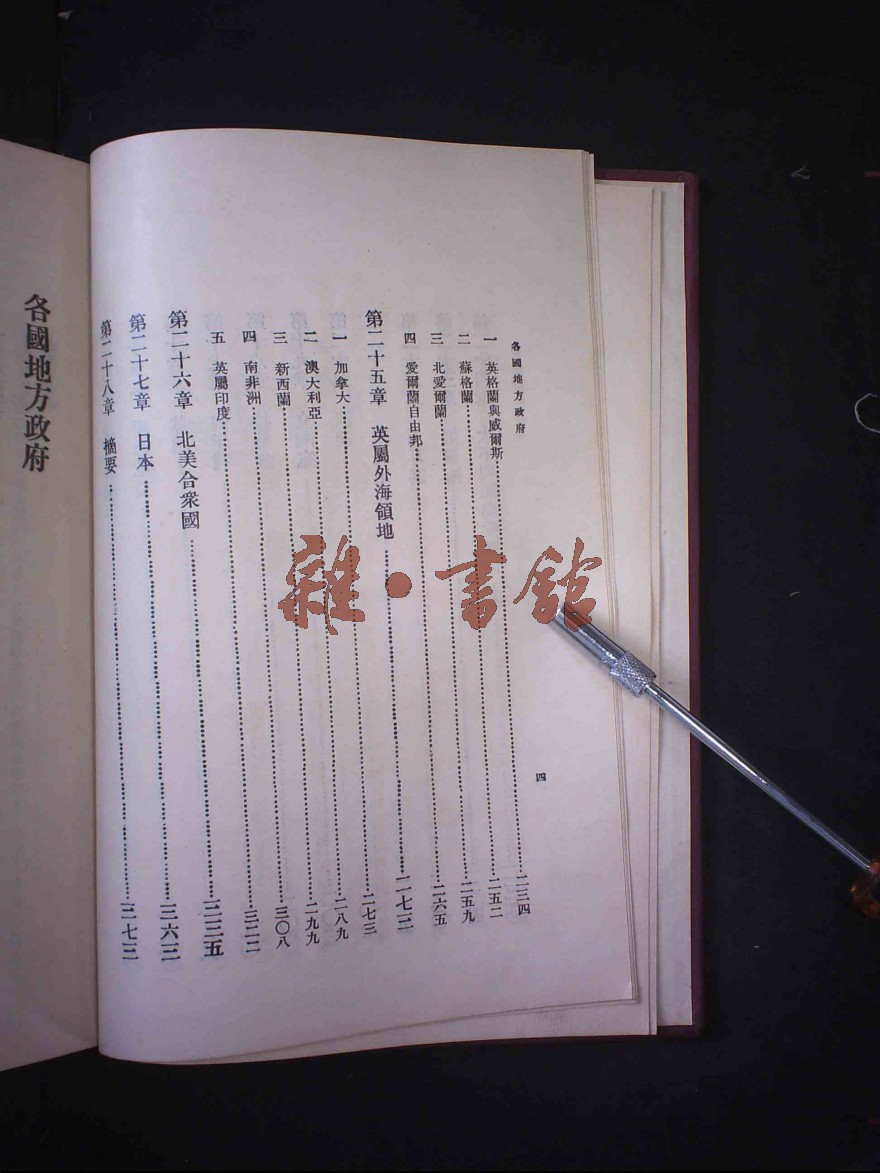 各國地方政府
四
一 英格蘭與威爾斯……二三四
二 蘇格蘭……二五二
三 北愛爾蘭……二五九
四 愛爾蘭自由邦……二六五
第二十五章 英屬外海領地……二七三
一 加拿大……二七三
二 澳大利亞……二八九
三 新西蘭……二九九
四 南非洲……三〇八
五 英屬印度……三二二
第二十六章 北美合衆國……三三五
第二十七章 日本……三六三
第二十八章 摘要……三七三
各國地方政府
雜·書館